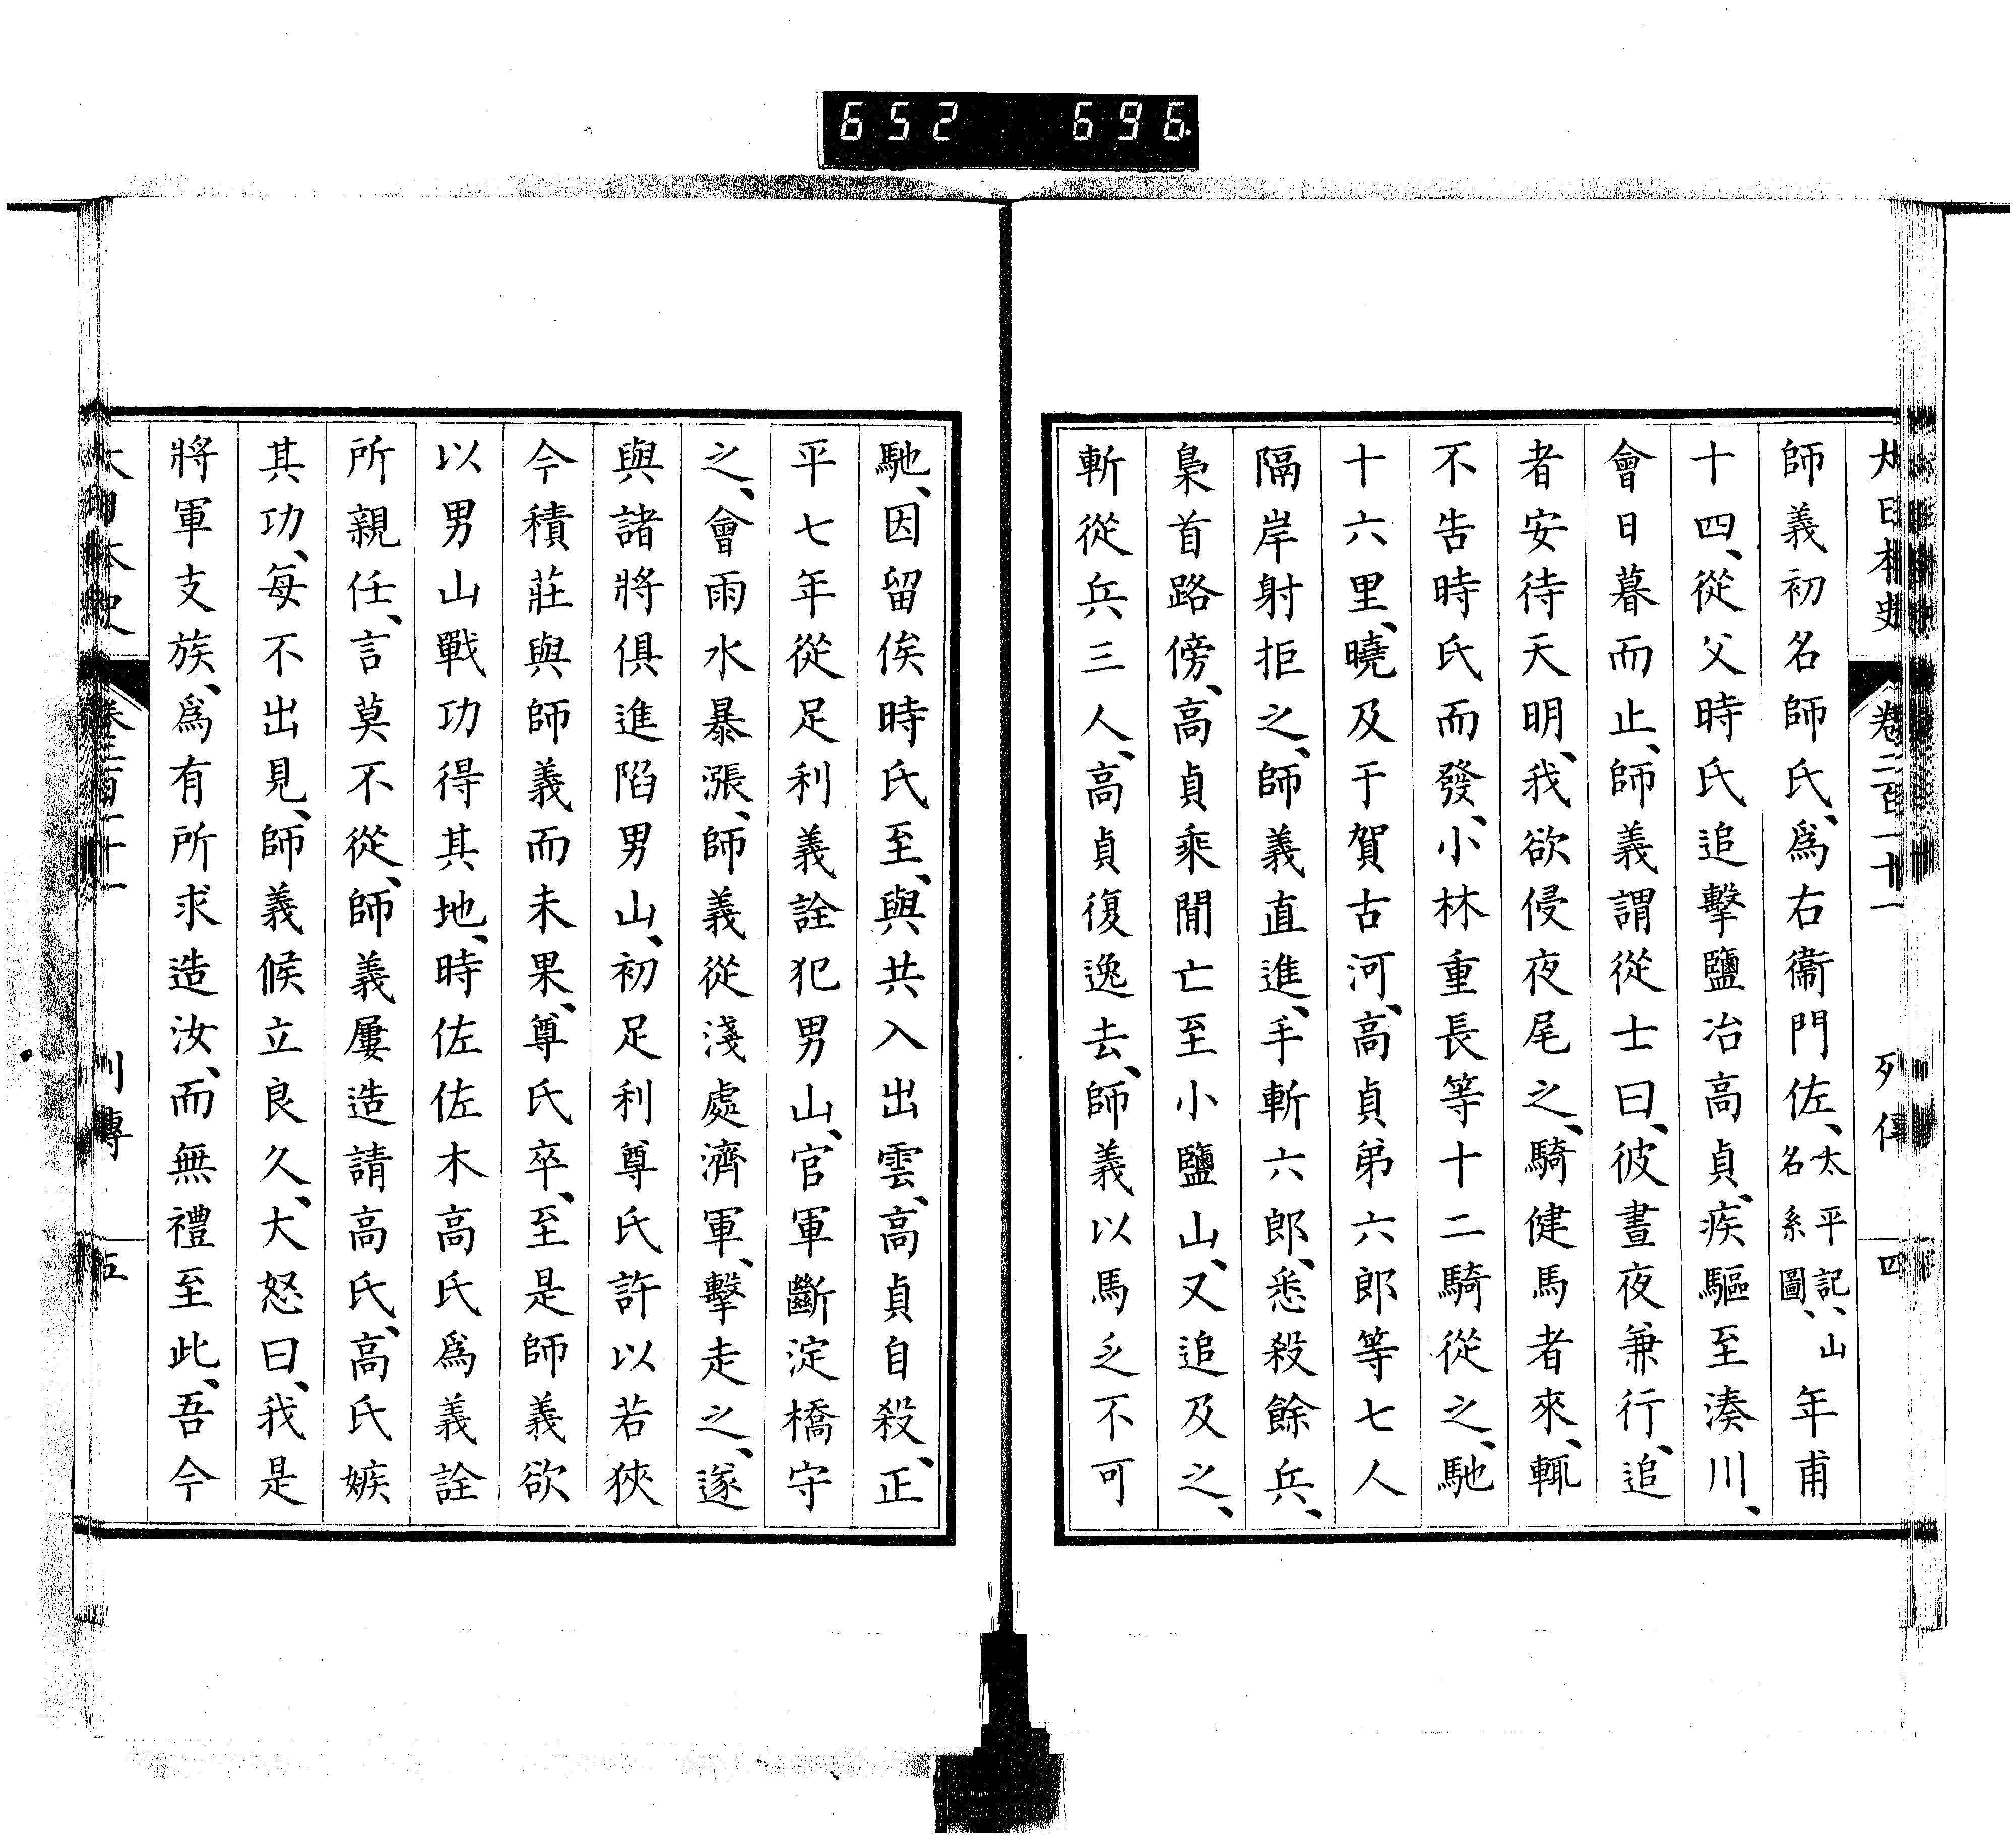 652 696
大日本史 卷二百一十一 列傳 四
師義初名師氏、爲右衞門佐、太平記、山名系圖、年甫
十四、從父時氏追擊鹽冶高貞、疾驅至湊川、
會日暮而止、師義謂從士曰、彼晝夜兼行、追
者安待天明、我欲侵夜尾之、騎健馬者來、輒
不告時氏而發、小林重長等十二騎從之、馳
十六里、曉及于賀古河、高貞弟六郎等七人
隔岸射拒之、師義直進、手斬六郎、悉殺餘兵、
梟首路傍、高貞乘間亡至小鹽山、又追及之、
斬從兵三人、高貞復逸去、師義以馬乏不可
馳、因留俟時氏至、與共入出雲、高貞自殺、正
平七年從足利義詮犯男山、官軍斷淀橋守
之、會雨水暴漲、師義從淺處濟軍、擊走之、遂
與諸將俱進陷男山、初足利尊氏許以若狹
今積莊與師義而未果、尊氏卒、至是師義欲
以男山戰功得其地、時佐佐木高氏爲義詮
所親任、言莫不從、師義屢造請高氏、高氏嫉
其功、每不出見、師義候立良久、大怒曰、我是
將軍支族、爲有所求造汝、而無禮至此、吾今
大日本史 卷二百一十一 列傳 五